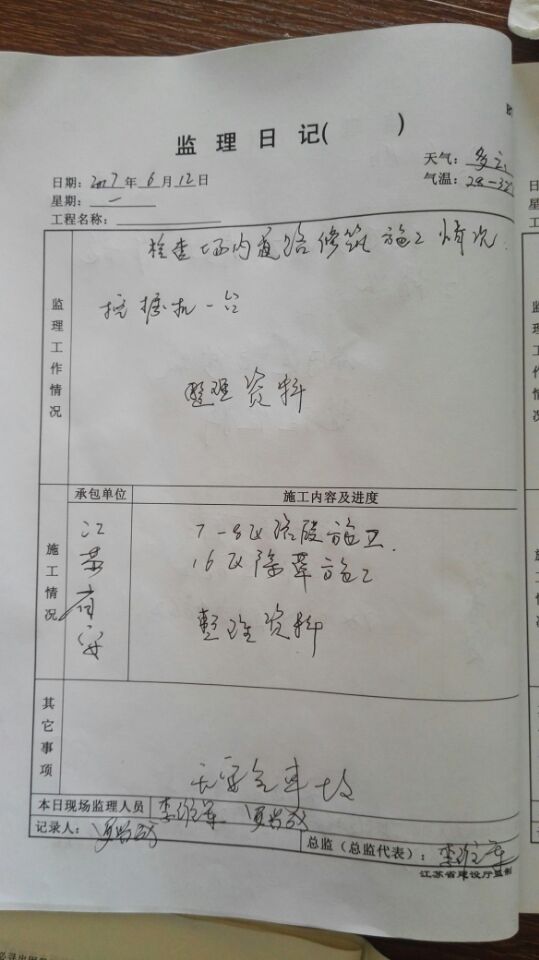 监理日记(          )
天气：多云
日期：2017年6月12日
气温：28-32
星期：一
工程名称：
监理工作情况
检查场内道路修筑施工情况.
挖掘机一台
整理资料
承包单位
施工内容及进度
施工情况
江苏
7-8区
施工.
16区除草施工
整理资料
其它事项
无安全事故
本日现场监理人员
记录人：
总监（总监代表）：
江苏省建设厅监制